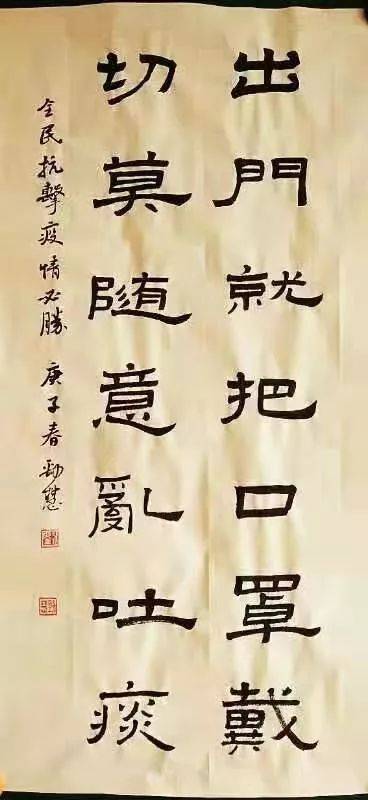 出門就把口罩戴
切莫随意亂吐痰
全民抗擊疫情必勝 庚子春 勁慧